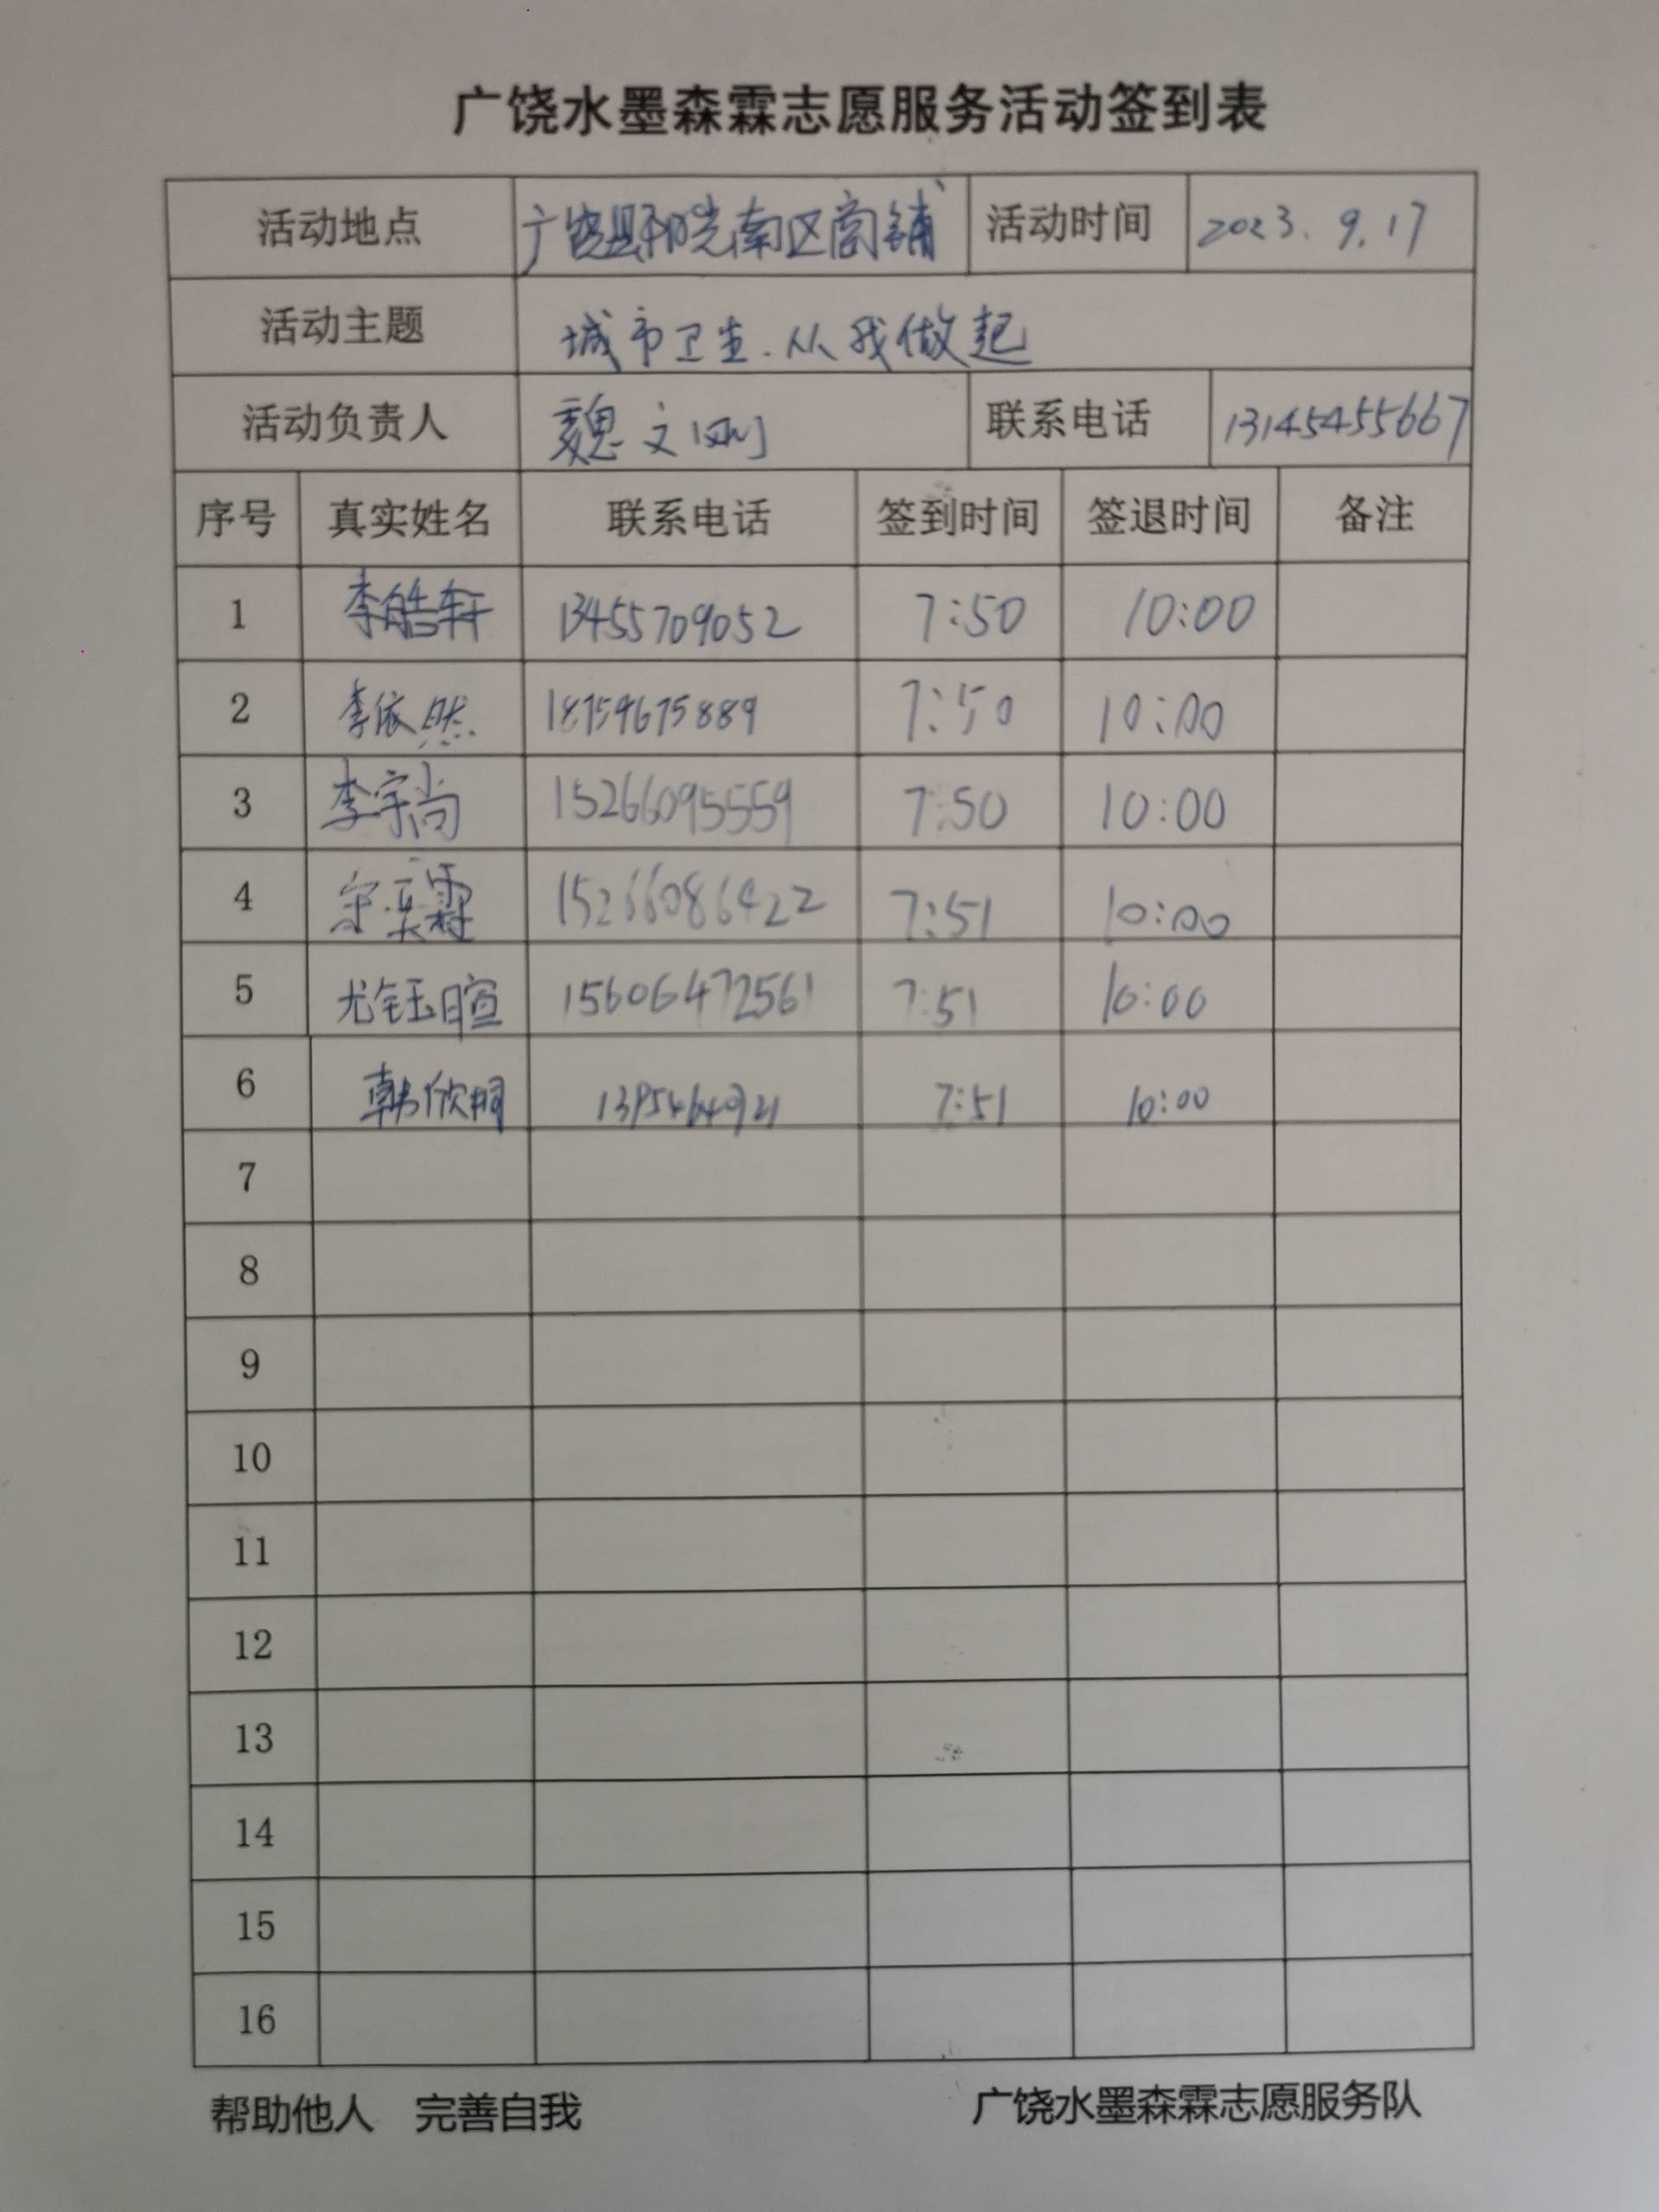 广饶水墨森霖志愿服务活动签到表
活动地点 广饶县阳光南区商铺 活动时间 2023.9.17
活动主题 城市卫生.从我做起
活动负责人 魏文刚 联系电话 13145455667
序号 真实姓名 联系电话 签到时间 签退时间 备注
1 李皓轩 13455709052 7:50 10:00
2 李依然 18759675889 7:50 10:00
3 李宇尚 15266095559 7:50 10:00
4 宋奕霖 15266086422 7:51 10:00
5 尤钰暄 15606472561 7:51 10:00
6 韩欣桐 7:51 10:00
7
8
9
10
11
12
13
14
15
16
帮助他人 完善自我 广饶水墨森霖志愿服务队